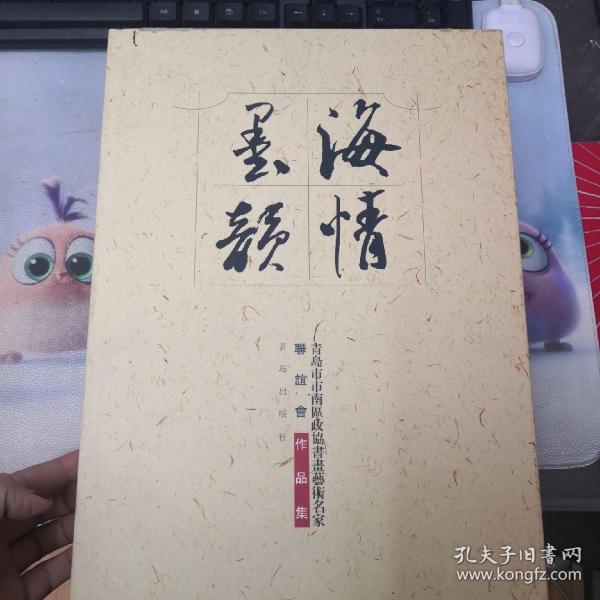 海情
墨韻
青島市市南區政協書畫藝術名家
聯誼會作品集
青島出版社
孔夫子旧书网
www.kongfz.com